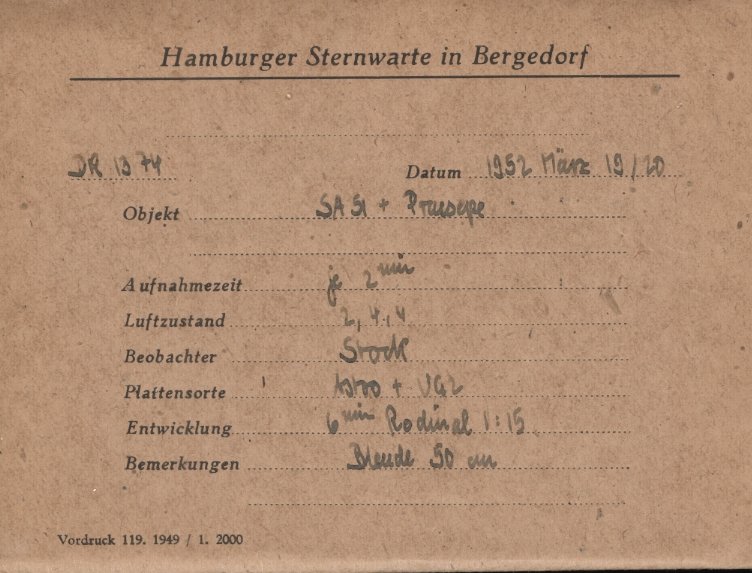 Hamburger Sternwarte in Bergedorf
DR 1374 Datum 1952 März 19/20
Objekt SA 51 + Praesepe
Aufnahmezeit je 2 min
Luftzustand 2, 4, 4
Beobachter Stock
Plattensorte Astro + UG2
Entwicklung 6 min Rodinal 1:15
Bemerkungen Blende 50 cm
Vordruck 119. 1949 / 1. 2000